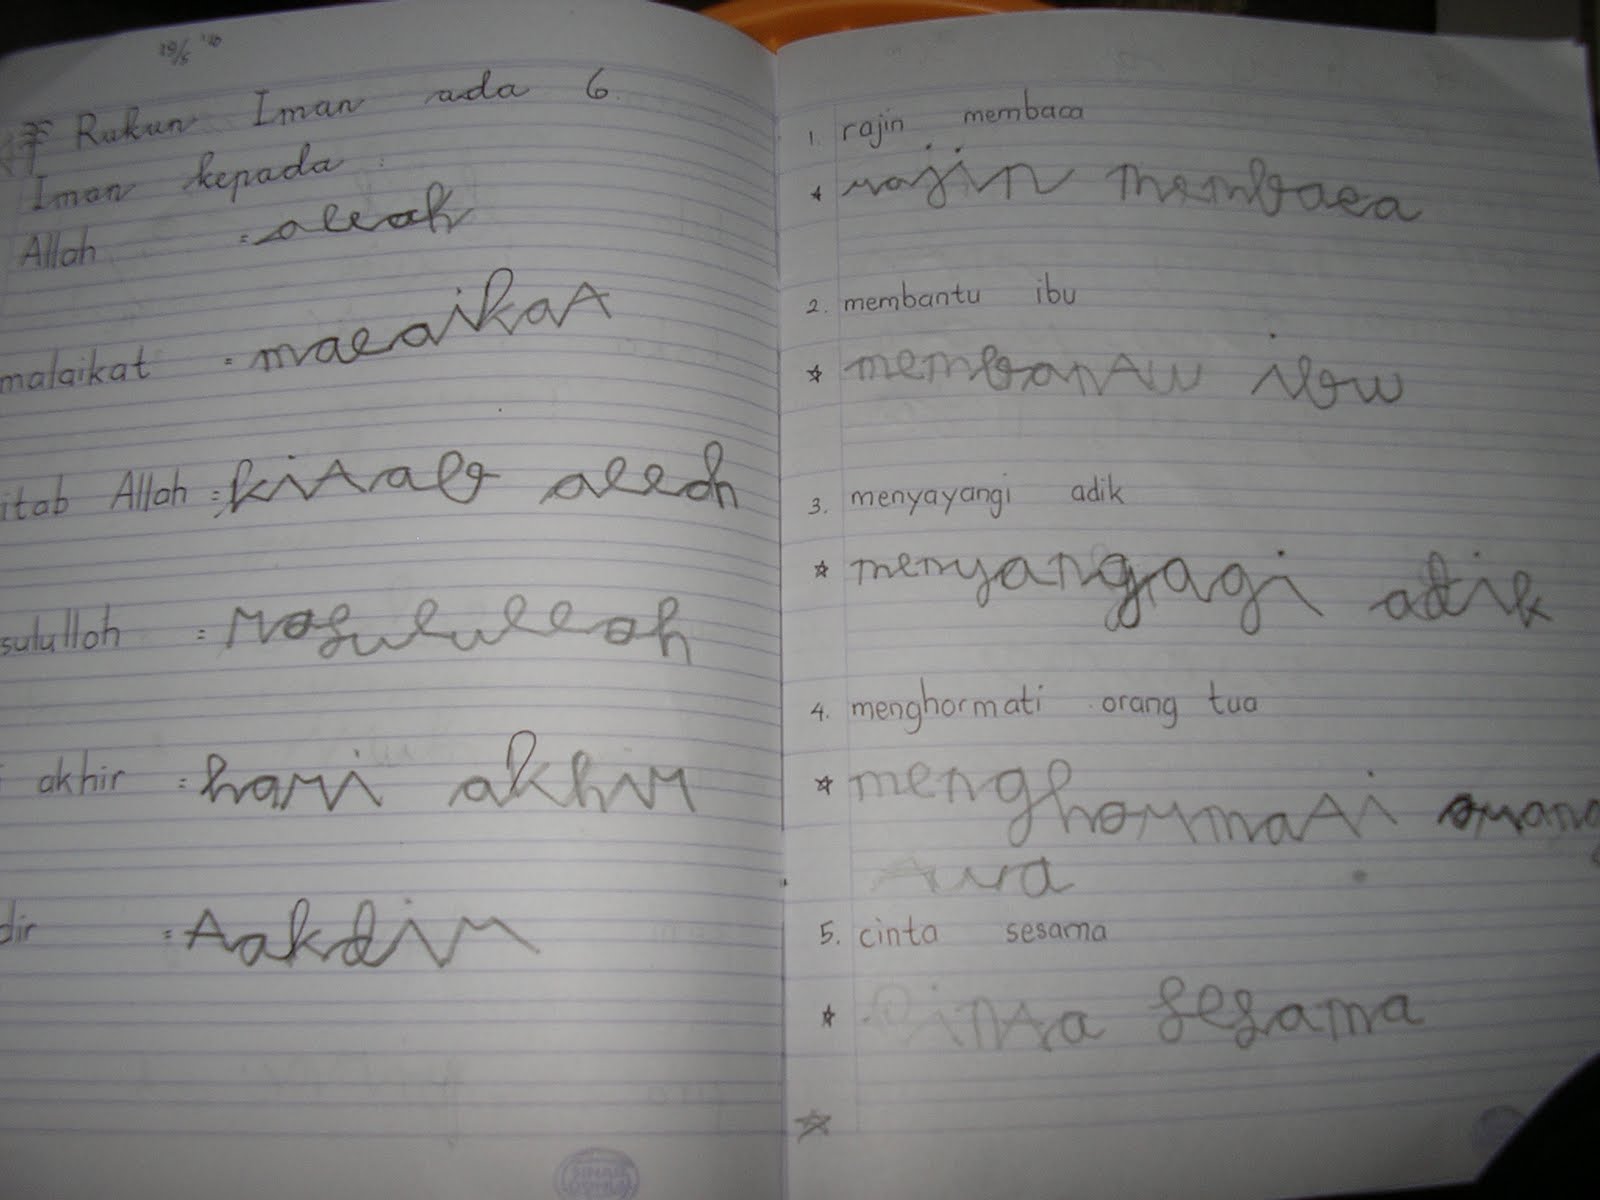 19/5 '10
Rukun Iman ada 6.
Iman kepada :
Allah = allah
malaikat = malaikat
itab Allah = kitab allah
sulullah = rasulullah
akhir = hari akhir
dir = takdir
1. rajin membaca
rajin membaca
2. membantu ibu
membantu ibu
3. menyayangi adik
menyangagi adik
4. menghormati orang tua
menghormati orang
tua
5. cinta sesama
cinta sesama